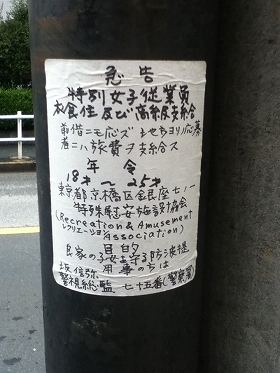 急告
特別女子従業員
衣食住及び高給支給
前借ニモ応ズ
応募
者ニハ旅費ヲ支給ス
年令
18才～25才
東京都京橋区銀座七ノ一
特殊慰安施設協会
(Recreation & Amusement
レクリエーション Association)
目的
民家の子女を守る防波堤
坂信弥 用事の方は
警視総監 七十五番(警察署)